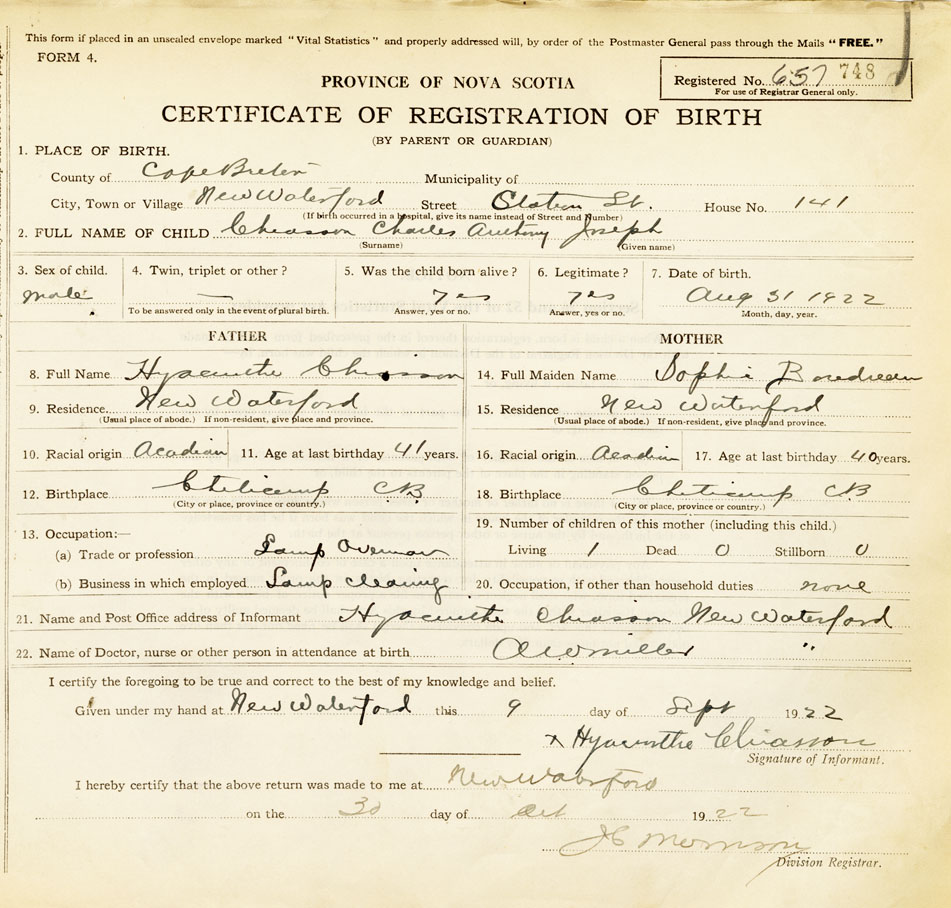 This form if placed in an unsealed envelope marked "Vital Statistics" and properly addressed will, by order of the Postmaster General pass through the Mails "FREE."
FORM 4.
Registered No. 657 748
For use of Registrar General only.
PROVINCE OF NOVA SCOTIA
CERTIFICATE OF REGISTRATION OF BIRTH
(BY PARENT OR GUARDIAN)
1. PLACE OF BIRTH.
County of Cape Breton Municipality of
City, Town or Village New Waterford Street St. House No. 141
(If birth occurred in a hospital, give its name instead of Street and Number)
2. FULL NAME OF CHILD Chiasson Charles Anthony Joseph
(Surname) (Given name)
3. Sex of child. 4. Twin, triplet or other? 5. Was the child born alive? 6. Legitimate? 7. Date of birth.
male — yes yes Aug 31 1922
To be answered only in the event of plural birth. Answer, yes or no. Answer, yes or no. Month, day, year.
FATHER MOTHER
8. Full Name Hyacinthe Chiasson 14. Full Maiden Name Sophie Boudreau
9. Residence. New Waterford 15. Residence New Waterford
(Usual place of abode.) If non-resident, give place and province. (Usual place of abode.) If non-resident, give place and province.
10. Racial origin Acadian 11. Age at last birthday 41 years. 16. Racial origin Acadian 17. Age at last birthday 40 years.
12. Birthplace Cheticamp CB 18. Birthplace Cheticamp CB
(City or place, province or country.) (City or place, province or country.)
13. Occupation:— 19. Number of children of this mother (including this child.)
(a) Trade or profession Lamp Overman Living 1 Dead 0 Stillborn 0
(b) Business in which employed Lamp cleaning 20. Occupation, if other than household duties none
21. Name and Post Office address of Informant Hyacinthe Chiasson New Waterford
22. Name of Doctor, nurse or other person in attendance at birth Miller "
I certify the foregoing to be true and correct to the best of my knowledge and belief.
Given under my hand at New Waterford this 9 day of Sept 1922
x Hyacinthe Chiasson
Signature of Informant.
I hereby certify that the above return was made to me at New Waterford
on the 30 day of Oct 1922
Morrison
Division Registrar.